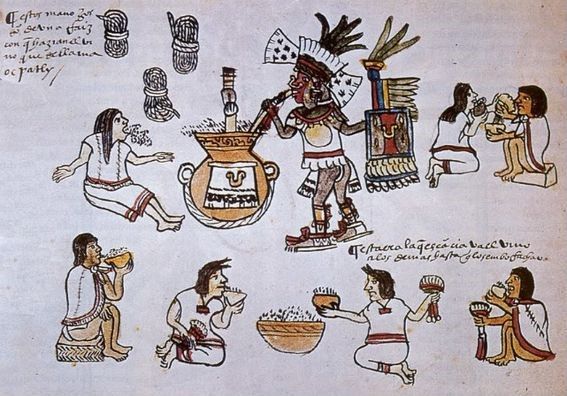 estos mano jos
de vna raiz
con q hazian el vi
no que se llama
ocpatly
esta era la q escācia va el vino
a los demas hasta q los emborrachava